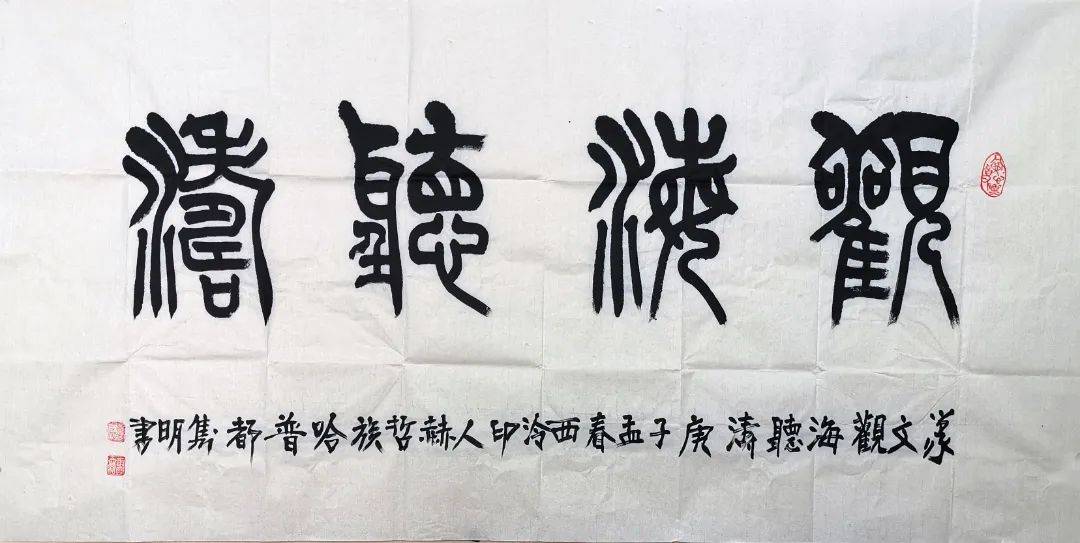 觀海聽濤
篆文觀海聽濤庚子孟春西泠印人赫哲族哈普都隽明書